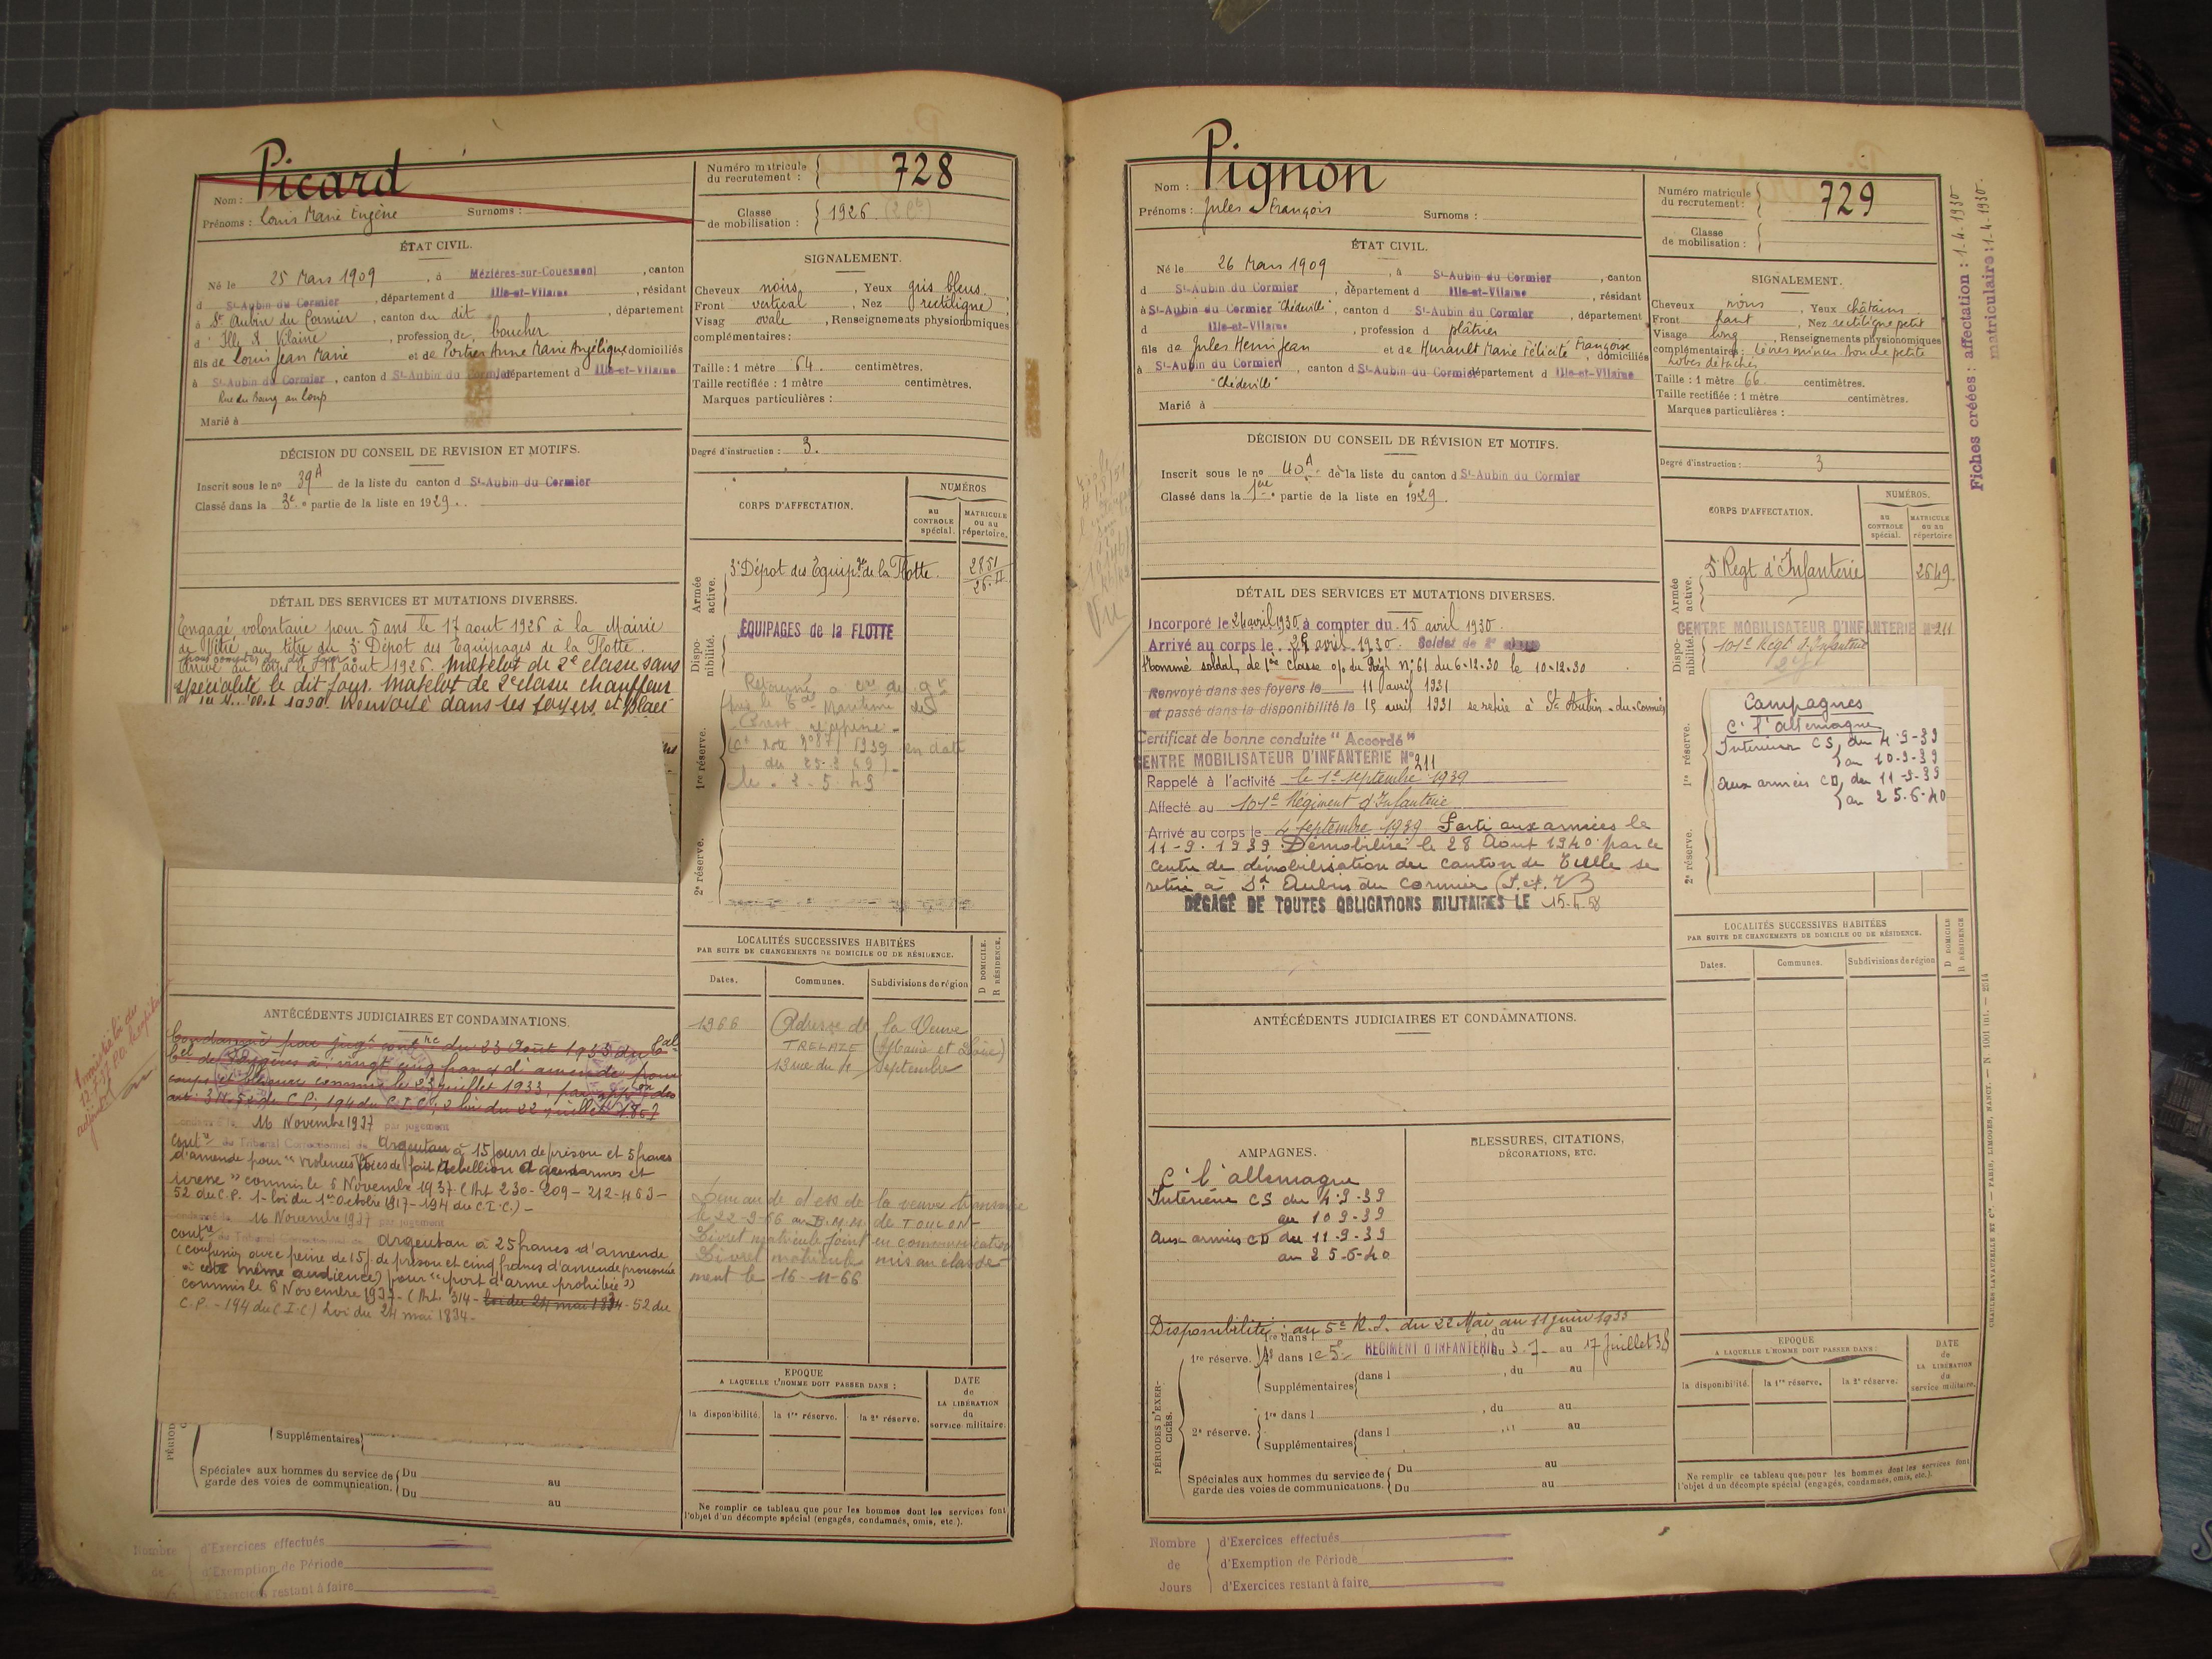 Picard
Nom :
Prénoms : Louis Marie Eugène Surnoms :
Numéro matricule du recrutement : 728
Classe de mobilisation : 1926
ÉTAT CIVIL.
Né le 25 Mars 1909, à Mézières-sur-Couesnon, canton
d St-Aubin du Cormier, département d Ille-et-Vilaine, résidant
à St Aubin du Cormier, canton du dit, département
d Ille & Vilaine, profession de boucher
fils de Louis Jean Marie et de Portier Anne Marie Angélique domiciliés
à St-Aubin du Cormier, canton d St-Aubin du Cormier, département d Ille-et-Vilaine
Rue du Bourg au loup
Marié à
SIGNALEMENT.
Cheveux noirs, Yeux gris bleus
Front vertical, Nez rectiligne
Visag ovale, Renseignements physionomiques
complémentaires :
Taille : 1 mètre 64 centimètres.
Taille rectifiée : 1 mètre centimètres.
Marques particulières :
Degré d'instruction : 3.
DÉCISION DU CONSEIL DE REVISION ET MOTIFS.
Inscrit sous le no 39A de la liste du canton d St-Aubin du Cormier
Classé dans la 3e partie de la liste en 1929.
CORPS D'AFFECTATION.
NUMÉROS
au CONTROLE spécial.
MATRICULE ou au répertoire.
Armée active.
3e Dépot des Equip.ges de la Flotte.
2851
26.II
Disponibilité.
ÉQUIPAGES de la FLOTTE
1re réserve.
1939 en date
2e réserve.
DÉTAIL DES SERVICES ET MUTATIONS DIVERSES.
Engagé volontaire pour 5 ans le 17 aout 1926 à la Mairie
de Vitré au titre du 3e Dépot des Equipages de la Flotte.
Arrivé au corps le 18 août 1926. Matelot de 2e classe sans
spécialité le dit jour. Matelot de 2e classe chauffeur
1929. Renvoyé dans ses foyers et placé
ANTÉCÉDENTS JUDICIAIRES ET CONDAMNATIONS.
Condamné par jugt contre du 23 Août 1933 du Bal
Cel de Fougères à vingt cinq francs d'amende pour
coups et blessures commis le 23 juillet 1933, par appon des
art. 311-52 du C.P., 194 du C.I.C., 2 loi du 22 juillet 1867
16 Novembre 1937 par jugement
contre du Tribunal Correctionnel de Argentan à 15 jours de prison et 5 francs
d'amende pour "violences voies de fait rébellion à gendarmes et
ivresse" commis le 6 Novembre 1937 (Art. 230-209-212-463-
52 du C.P. 1-loi du 1er Octobre 1917-194 du C.I.C.)-
16 Novembre 1937 par jugement
contre du Tribunal Correctionnel de Argentan à 25 francs d'amende
(confusion avec peine de 15 j. de prison et cinq francs d'amende prononcée
à cette même audience) pour "port d'arme prohibée"
commis le 6 Novembre 1937-(Art. 314-loi du 24 mai 1834-52 du
C.P.-194 du C.I.C.) Loi du 24 mai 1834-
LOCALITÉS SUCCESSIVES HABITÉES
PAR SUITE DE CHANGEMENTS DE DOMICILE OU DE RÉSIDENCE.
D DOMICILE.
R RÉSIDENCE.
Dates. Communes. Subdivisions de région
1966 Adresse de la Veuve
TRELAZE (Maine et Loire)
13 rue du 4 Septembre
le 22-9-66 au B.M.M. de TOULON-
Livret matricule joint en communication
Livret matricule mis au classe-
ment le 16-11-66
EPOQUE
A LAQUELLE L'HOMME DOIT PASSER DANS :
DATE de LA LIBÉRATION du service militaire.
la disponibilité. la 1re réserve. la 2e réserve.
Ne remplir ce tableau que pour les hommes dont les services font
l'objet d'un décompte spécial (engagés, condamnés, omis, etc.).
Supplémentaires
Spéciales aux hommes du service de garde des voies de communication.
Du au
Du au
Nombre de
d'Exercices effectués
d'Exemption de Période
d'Exercices restant à faire
Pignon
Nom :
Prénoms : Jules François Surnoms :
Numéro matricule du recrutement : 729
Classe de mobilisation :
Fiches créées : affectation : 1-4-1930
matriculaire : 1-4-1930.
ÉTAT CIVIL.
Né le 26 Mars 1909, à St-Aubin du Cormier, canton
d St-Aubin du Cormier, département d Ille-et-Vilaine, résidant
à St-Aubin du Cormier "Chédeville", canton d St-Aubin du Cormier, département
d Ille-et-Vilaine, profession d plâtrier
fils de Jules Henri Jean et de Hurault Marie Félicité Françoise, domiciliés
à St-Aubin du Cormier, canton d St-Aubin du Cormier, département d Ille-et-Vilaine
"Chédeville"
Marié à
SIGNALEMENT.
Cheveux noirs, Yeux châtains
Front haut, Nez rectiligne petit
Visage long, Renseignements physionomiques
complémentaires : lèvres minces bouche petite
lobes détachés
Taille : 1 mètre 66 centimètres.
Taille rectifiée : 1 mètre centimètres.
Marques particulières :
Degré d'instruction : 3
DÉCISION DU CONSEIL DE RÉVISION ET MOTIFS.
Inscrit sous le no 40A de la liste du canton d St-Aubin du Cormier
Classé dans la 1ère partie de la liste en 1929.
CORPS D'AFFECTATION.
NUMÉROS.
au CONTROLE spécial.
MATRICULE ou au répertoire
Armée active.
5e Regt d'Infanterie 2649
Disponibilité.
CENTRE MOBILISATEUR D'INFANTERIE N°211
101e Régt d'Infanterie
1re réserve.
Campagnes
C. l'Allemagne
Intérieur CS, du 4-9-39
au 10-9-39
aux armées CD, du 11-9-39
au 25-6-40
2e réserve.
Vu
DÉTAIL DES SERVICES ET MUTATIONS DIVERSES.
Incorporé le 24 avril 1930 à compter du 15 avril 1930.
Arrivé au corps le 24 avril 1930. Soldat de 2e classe
Nommé soldat de 1ère classe o/ du Régt n° 61 du 6-12-30 le 10-12-30
Renvoyé dans ses foyers le 11 avril 1931
et passé dans la disponibilité le 15 avril 1931 se retire à St Aubin-du-Cormier
Certificat de bonne conduite "Accordé"
CENTRE MOBILISATEUR D'INFANTERIE N°211
Rappelé à l'activité le 1er septembre 1939
Affecté au 101e Régiment d'Infanterie
Arrivé au corps le 4 septembre 1939 Parti aux armées le
11-9-1939. Démobilisé le 28 Aout 1940 par le
centre de démobilisation du canton de Tulle se
retire à St Aubin du Cormier
DÉGAGÉ DE TOUTES OBLIGATIONS MILITAIRES LE 15-4-58
ANTÉCÉDENTS JUDICIAIRES ET CONDAMNATIONS.
LOCALITÉS SUCCESSIVES HABITÉES
PAR SUITE DE CHANGEMENTS DE DOMICILE OU DE RÉSIDENCE.
D DOMICILE
R RÉSIDENCE
Dates. Communes. Subdivisions de région
AMPAGNES.
C. l'allemagne
Intérieur CS du 4-9-39
au 10 9-39
Aux armées CD du 11-9-39
au 25-6-40
BLESSURES, CITATIONS,
DÉCORATIONS, ETC.
Disponibilité : au 5e R.I. du 22 Mai au 11 juin 1933
PÉRIODES D'EXERCICES.
1re réserve.
1re dans l , du au
dans le 5e RÉGIMENT D'INFANTERIE du 3-7 au 17 Juillet 38
Supplémentaires dans l , du au
2e réserve.
1re dans l , du au
Supplémentaires dans l , du au
Spéciales aux hommes du service de garde des voies de communications.
Du au
Du au
EPOQUE
A LAQUELLE L'HOMME DOIT PASSER DANS :
DATE de LA LIBÉRATION du service militaire.
la disponibilité. la 1re réserve. la 2e réserve.
Ne remplir ce tableau que pour les hommes dont les services font
l'objet d'un décompte spécial (engagés, condamnés, omis, etc.).
CHARLES-LAVAUZELLE ET Cie. — PARIS, LIMOGES, NANCY.
Nombre de Jours
d'Exercices effectués
d'Exemption de Période
d'Exercices restant à faire